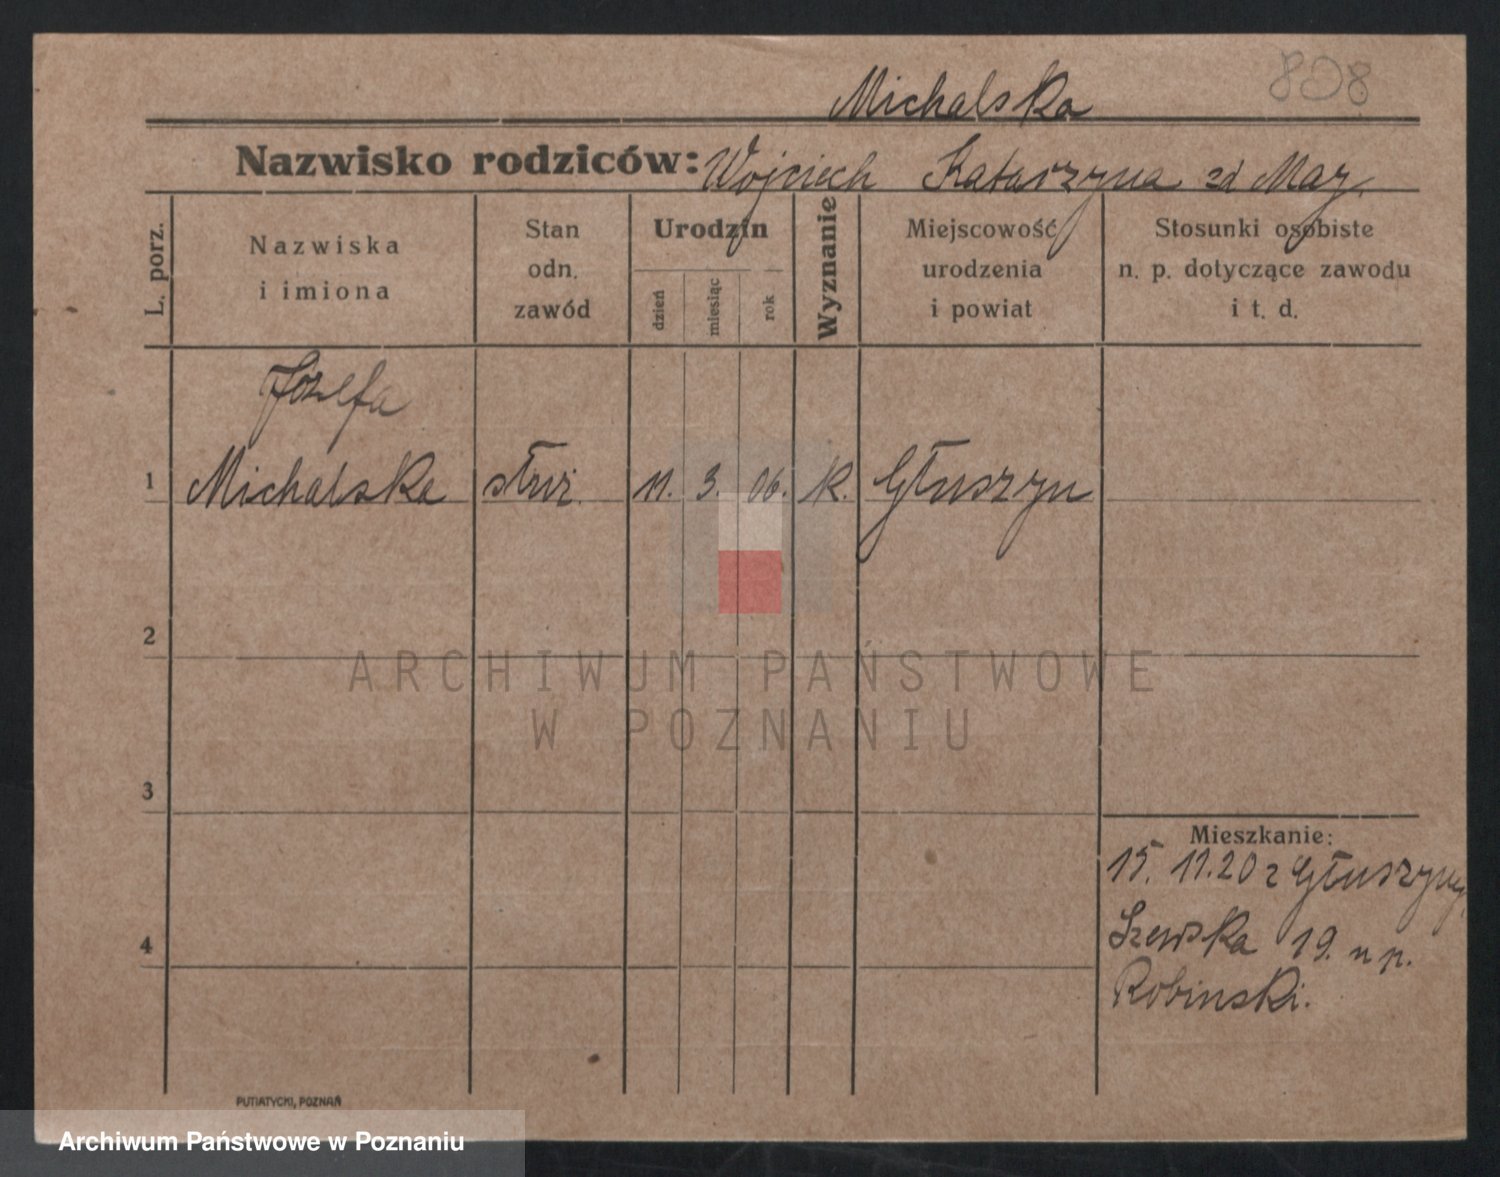 808
Michalska
Nazwisko rodziców: Wojciech Katarzyna zd May
L. porz.
Nazwiska
i imiona
Stan
odn.
zawód
Urodzin
dzień
miesiąc
rok
Wyznanie
Miejscowość
urodzenia
i powiat
Stosunki osobiste
n. p. dotyczące zawodu
i t. d.
Józefa
1 Michalska służ. 11. 3. 06. K. Głuszyn
2
ARCHIWUM PAŃSTWOWE
W POZNANIU
3
Mieszkanie:
15. 11.20 z Głuszyny
4
Szewska 19. u p.
Robinski.
PUTIATYCKI, POZNAŃ
Archiwum Państwowe w Poznaniu